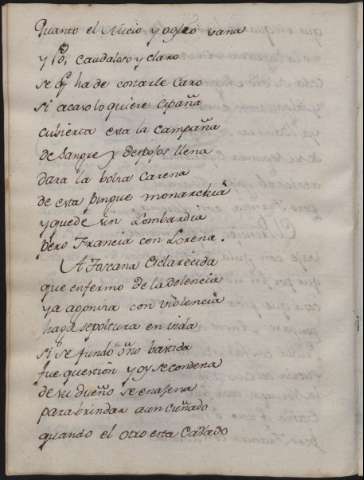 quanto el Micio y oglio vana
y Pô, caudaloso y claro
se q ha de costarle caro
si acaso lo quiere España
cubierta esta la campaña
de sangre y despojos llena
dara la bolsa Carena
de esta pingue monarchia
y quede sin Lombardia
pero Francia con Lorena.
A Toscana esclarecida
que enfermo de la dolencia
ya agoniza con violencia
haya sepoltura en vida
si se fundó ô no bastida
fue question y oy se condena
de su dueño se enagena
para brindar a un cuñado
quando el otro esta casado